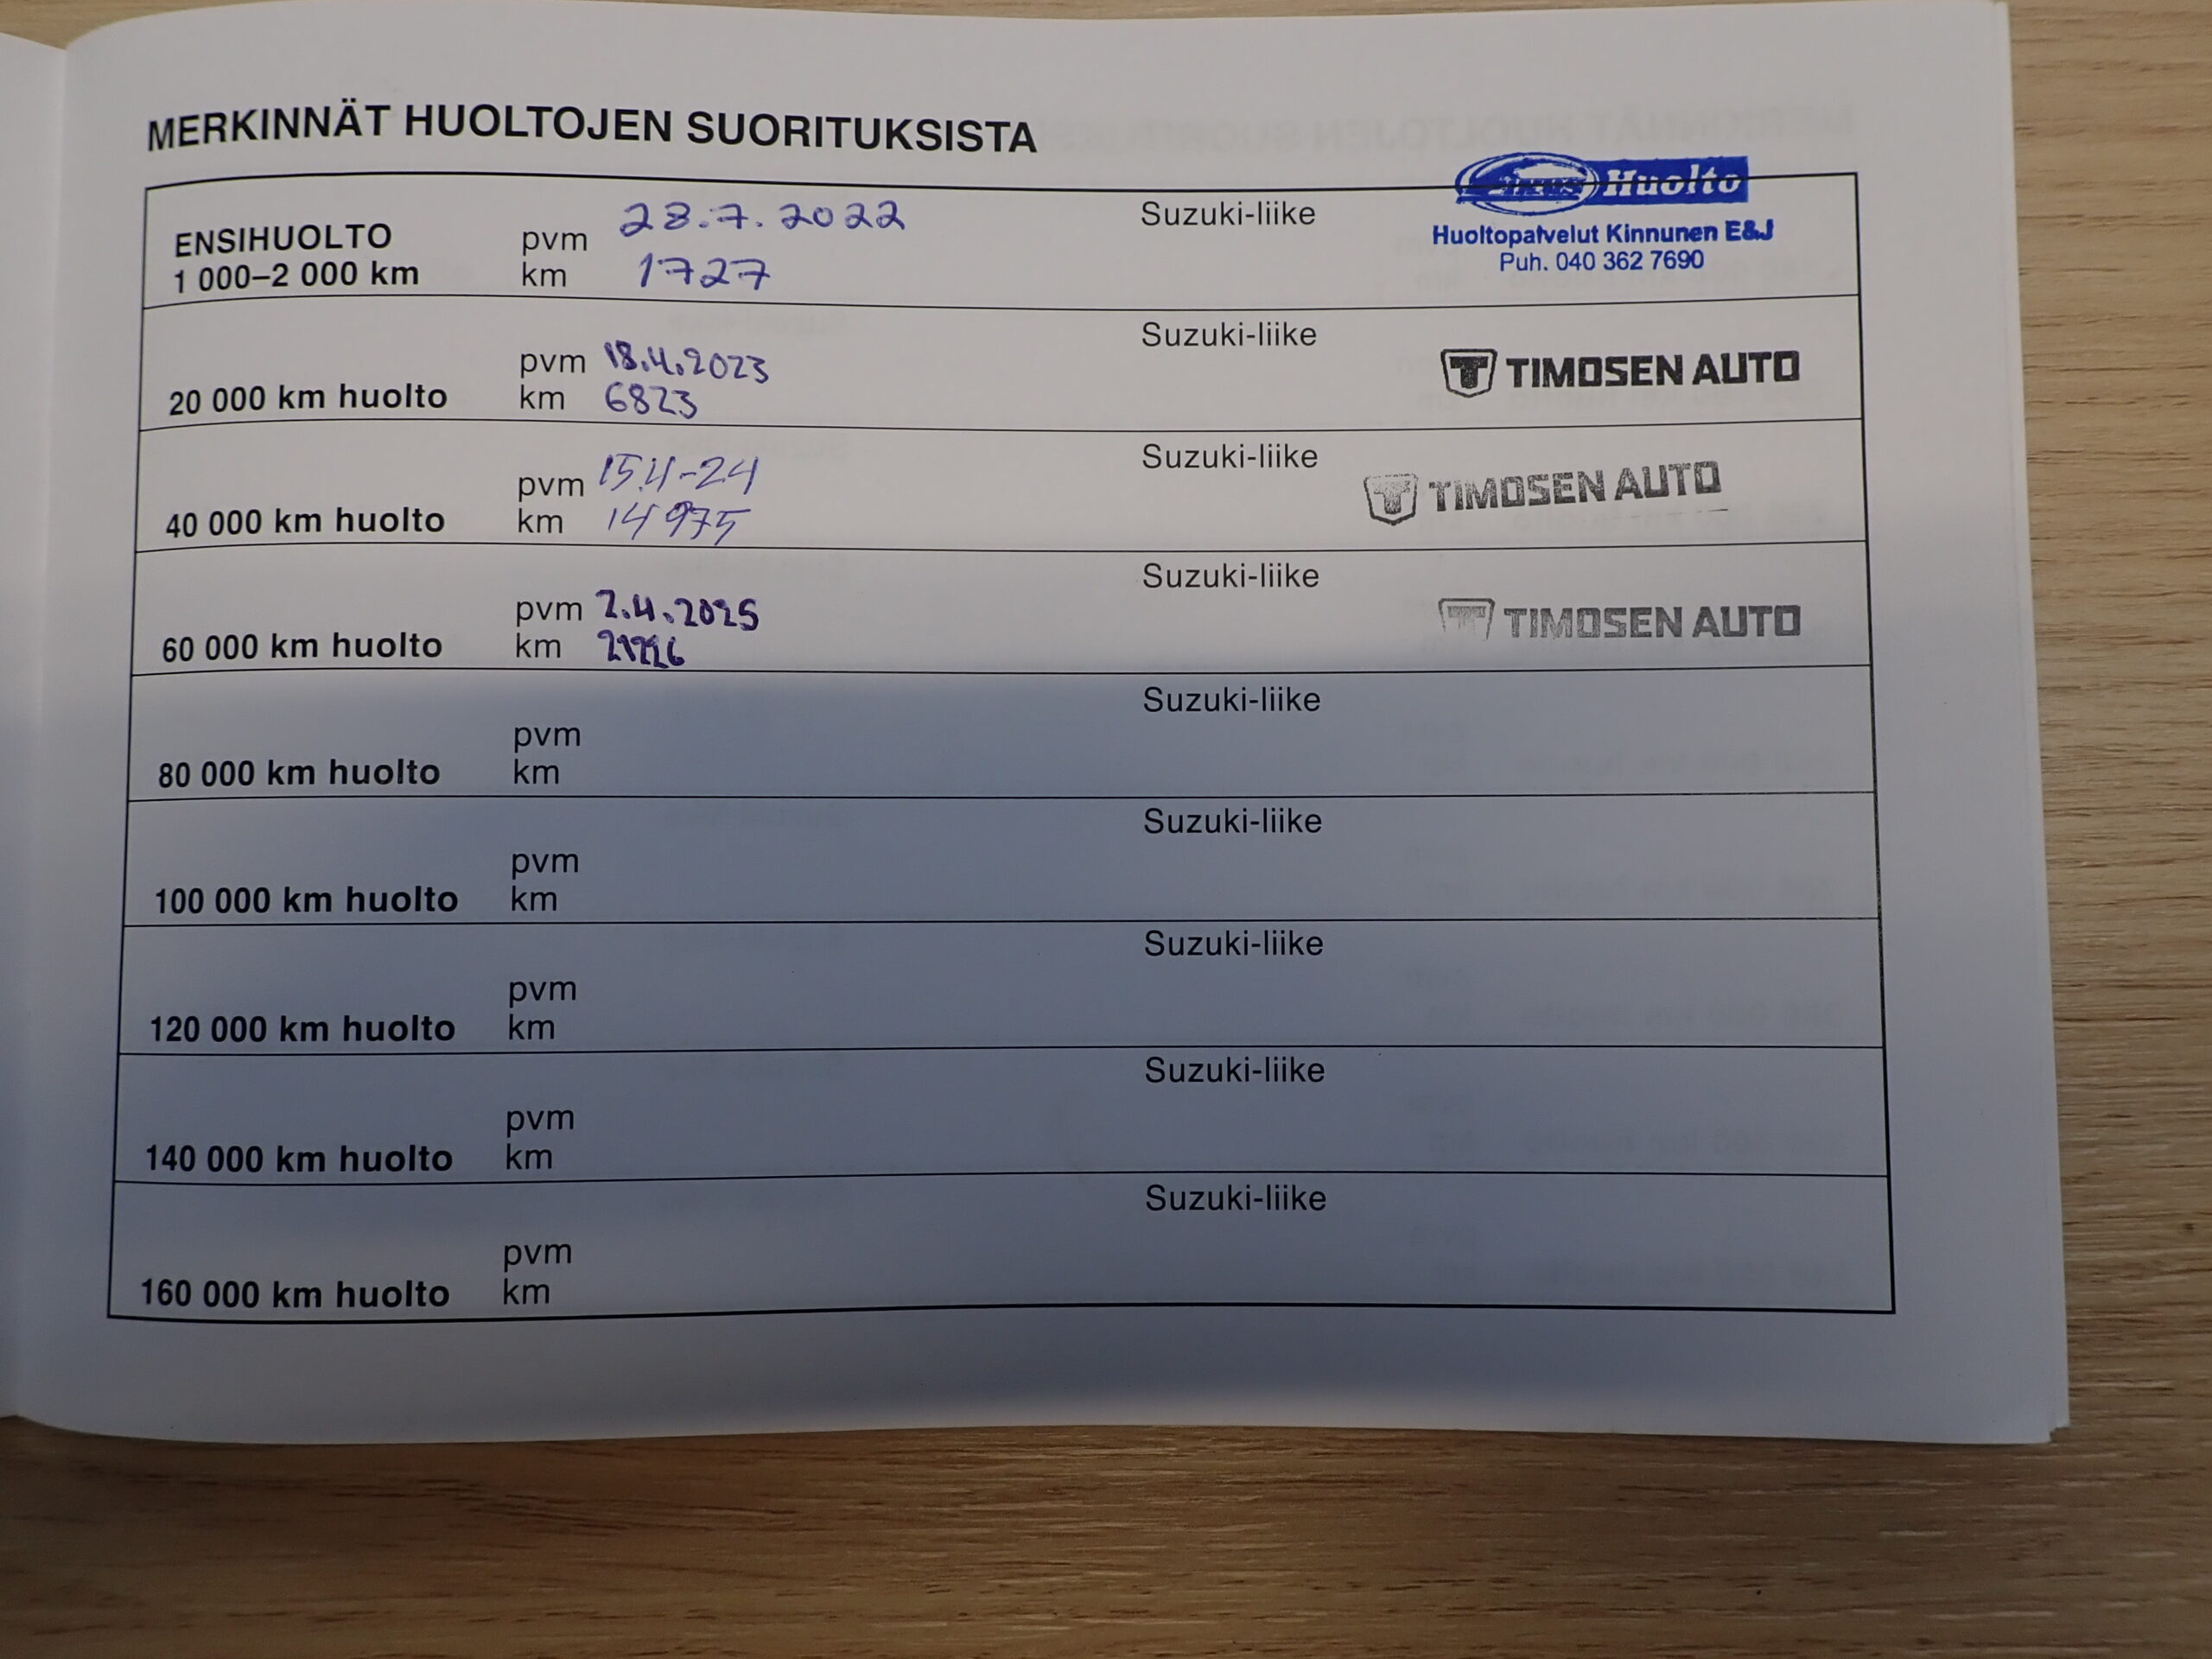 MERKINNÄT HUOLTOJEN SUORITUKSISTA
ENSIHUOLTO
1 000–2 000 km
pvm 28.7.2022
km 1727
Suzuki-liike
Huolto
Huoltopalvelut Kinnunen E&J
Puh. 040 362 7690
20 000 km huolto
pvm 18.4.2023
km 6823
Suzuki-liike
TIMOSEN AUTO
40 000 km huolto
pvm 15.4-24
km 14975
Suzuki-liike
TIMOSEN AUTO
60 000 km huolto
pvm 2.4.2025
km
Suzuki-liike
TIMOSEN AUTO
80 000 km huolto
pvm
km
Suzuki-liike
100 000 km huolto
pvm
km
Suzuki-liike
120 000 km huolto
pvm
km
Suzuki-liike
140 000 km huolto
pvm
km
Suzuki-liike
160 000 km huolto
pvm
km
Suzuki-liike